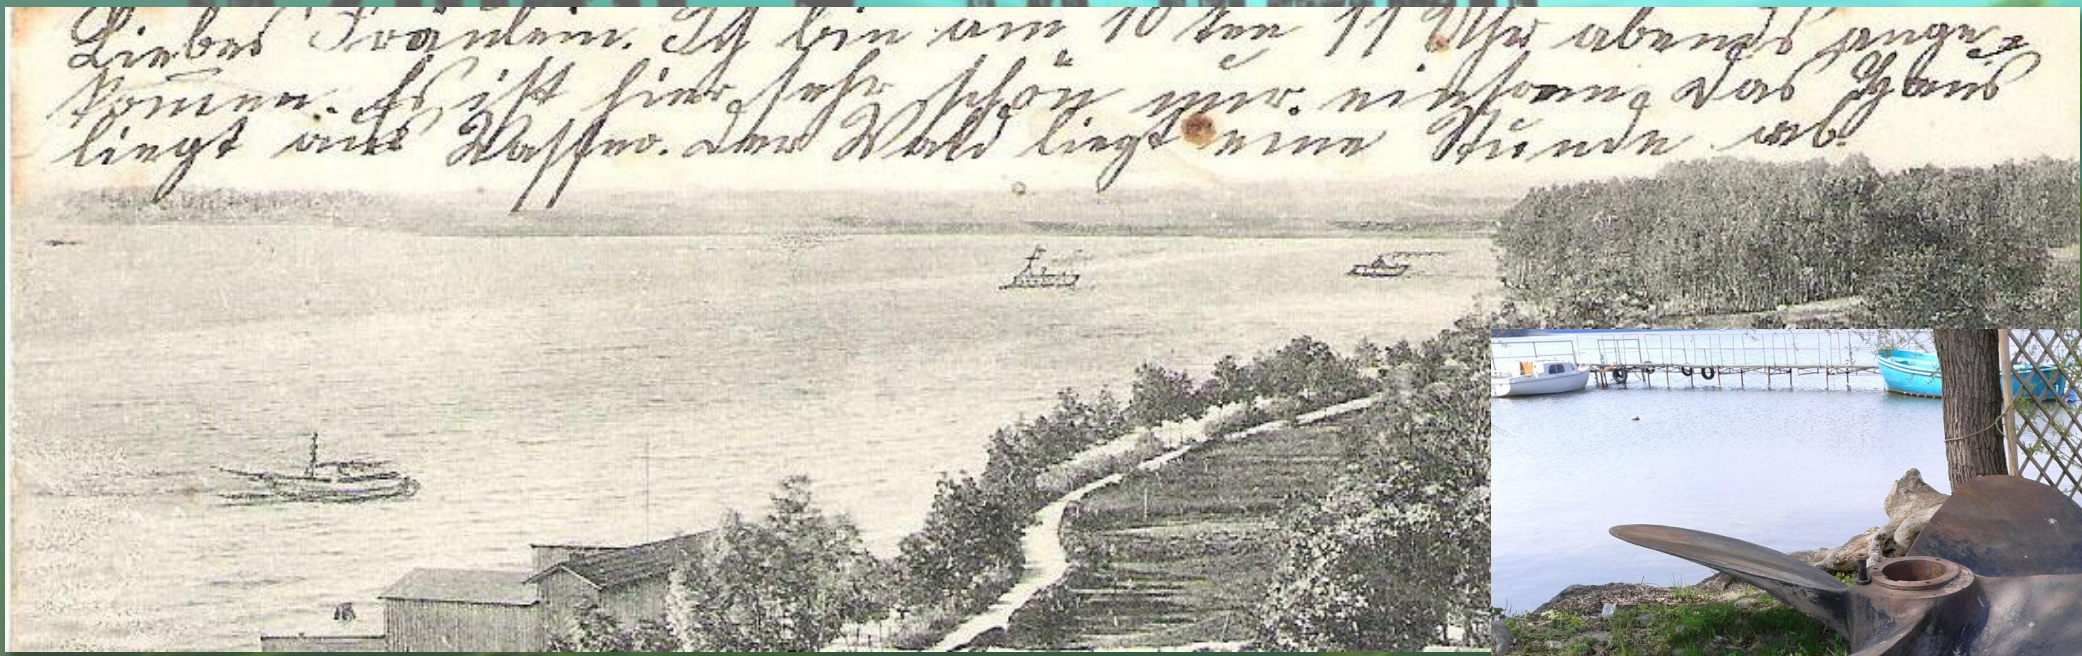 Liebes Fräulein. Ich bin am 10 ten 11 Uhr abends ange-
kommen. Es ist hier sehr schön nur einsam. Das Haus
liegt am Wasser. Der Wald liegt eine Stunde ab.